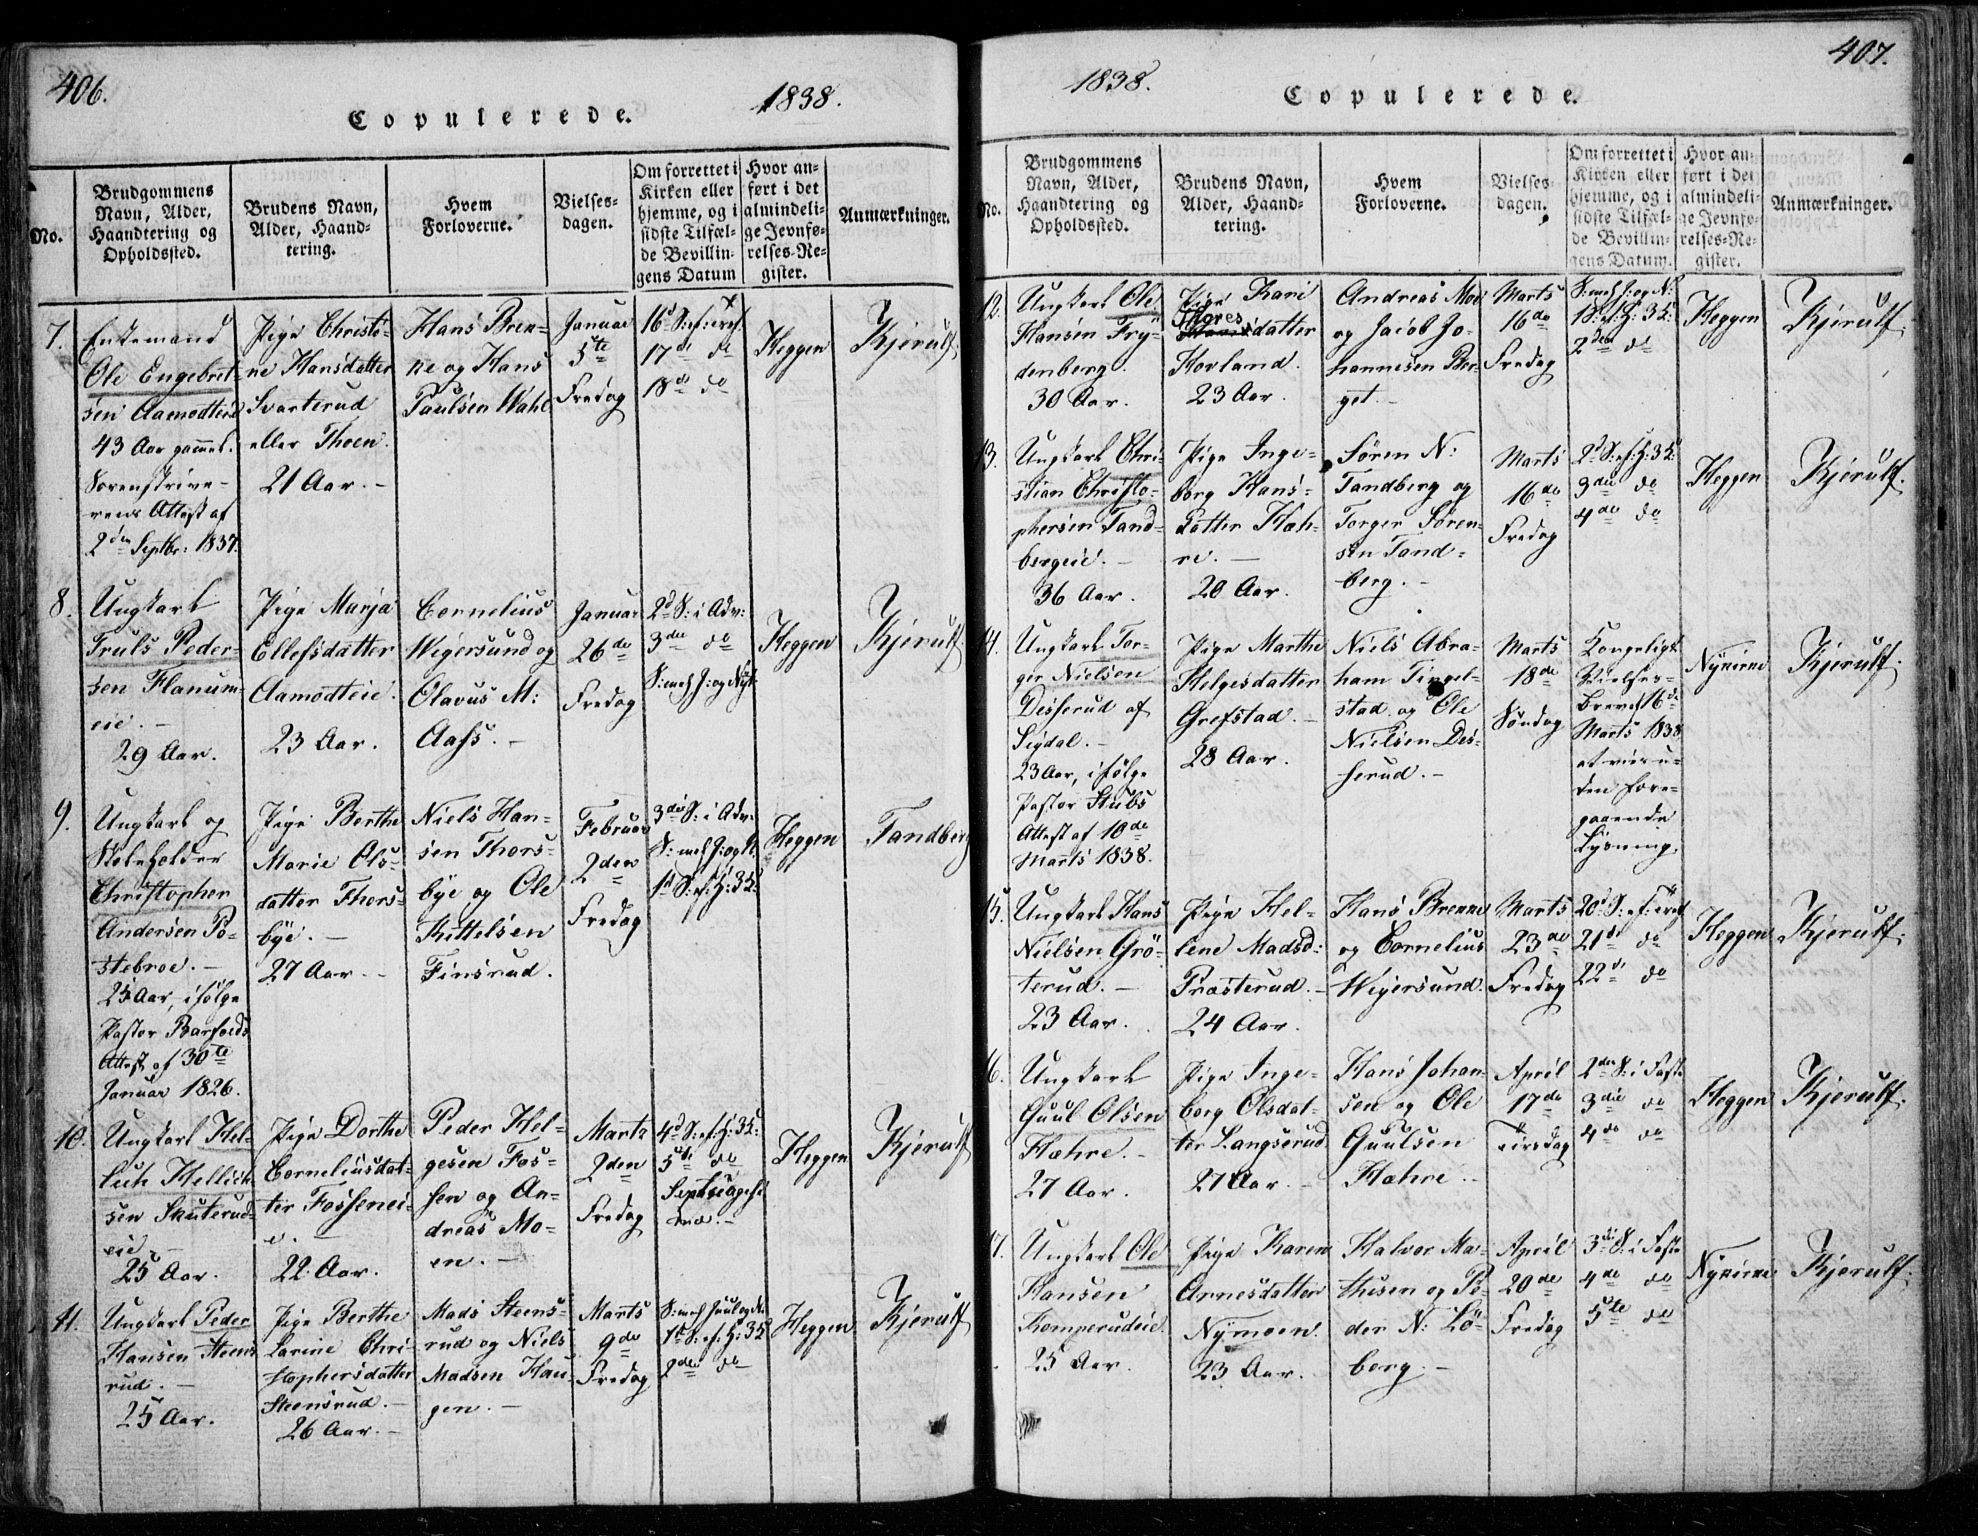 406.
1838.
Copulerede.
No.
Brudgommens
Navn, Alder,
Haandtering og
Opholdssted.
Brudens Navn,
Alder, Haand-
tering.
Hvem
Forloverne.
Vielses-
dagen.
Om forrettet i
Kirken eller
hjemme, og i
sidste Tilfæl-
de Bevillin-
gens Datum
Hvor an-
ført i det
almindeli-
ge Jevnfø-
relses-Re-
gister.
Anmærkninger.
7.
Enkemand
Ole Engebret-
sen Aamodteie
43 Aar gammel.
Sorenskrive-
rens Attest af
2den Septbr: 1837.
Pige Christi-
ne Hansdatter
Svarterud
eller Thoen.
21 Aar. -
Hans Bren-
ne og Hans
Paulsen Wahl
Januar
5te
Fredag
16d S: ef: tref.
17de do
18de do
Heggen
Kjerulf.
8.
Ungkarl
Truls Peder-
sen Flanum-
eie. -
29 Aar.
Pige Marja
Ellefsdatter
Aamodteie.
23 Aar.
Cornelius
Wigersund og
Olavus M:
Aass. -
Januar
26de
Fredag
2d S: i Adv:
3die do
S: mel J: og Nyt.
Heggen
Kjerulf
9.
Ungkarl og
Skoleholder
Christopher
Andersen Po-
stebroe. -
25 Aar, ifølge
Pastor Barfoeds
Attest af 30te
Januar 1826.
Pige Berthe
Marie Ols-
datter Thors-
bye. -
27 Aar. -
Niels Han-
sen Thors-
bye og Ole
Kittelsen
Finsrud.
Februar
2den
Fredag
3die S: i Adv:
S: mel J: og N:
1d S: ef: H: 3 K:
Heggen
Tandberg
10.
Ungkarl Hel-
lich Hellich-
sen Skuterud-
eie. -
25 Aar.
Pige Dorthe
Corneliusdat-
ter Fossenei-
e. -
22 Aar.
Peder Hel-
gesen Fos-
sen og An-
dreas Mo-
en. -
Marts
2den
Fredag
4d S: ef: H: 3 K:
5te do
Septuagesi
mæ. -
Heggen
Kjerulf
11.
Ungkarl Peder
Hansen Steens
rud. -
25 Aar.
Pige Berthe
Larine Chri-
stophersdatter
Steensrud. -
26 Aar. -
Mads Steens-
rud og Niels
Madsen Hau-
gen. -
Marts
9de
Fredag
S: mel Juul og N:
1d S: ef: H: 3 K
2den do
Heggen
Kjerulf
407.
1838.
Copulerede.
No.
Brudgommens
Navn, Alder,
Haandtering og
Opholdssted.
Brudens Navn,
Alder, Haand-
tering.
Hvem
Forloverne.
Vielses-
dagen.
Om forrettet i
Kirken eller
hjemme, og i
sidste Tilfæl-
de Bevillin-
gens Datum.
Hvor an-
ført i det
almindeli-
ge Jevnfø-
relses-Re-
gister.
Anmærkninger.
12.
Ungkarl Ole
Hansen Fry-
denberg.
30 Aar.
Pige Kari
Thores
datter
Hovland.
23 Aar.
Andreas Moe
og Jacob Jo-
hannesen Ber-
get. -
Marts
16de
Fredag
S: mel J: og N:
1d S: ef: H: 3 K:
2den do
Heggen
Kjerulf.
13.
Ungkarl Chri-
stian Christo-
phersen Tand-
bergeie. -
36 Aar.
Pige Inge-
borg Hans-
datter Hæh-
re. -
20 Aar.
Søren N:
Tandberg og
Torger Søren-
sen Tand-
berg. -
Marts
16de
Fredag
2d S: ef: H: 3 K:
3die do
4de do
Heggen
Kjerulf.
14.
Ungkarl Tor-
ger Nielsen
Disserud af
Sigdal. -
23 Aar, ifølge
Pastor Stubs
Attest af 10de
Marts 1838.
Pige Marthe
Helgesdatter
Grefstad. -
28 Aar.
Niels Abra-
ham Tingel-
stad og Ole
Nielsen Dis-
serud. -
Marts
18de
Søndag
Kongeligt
Vielses-
Brev af 16de
Marts 1838
at vies u-
den fore-
gaaende
Lysning.
Nykirke
Kjerulf.
15.
Ungkarl Hans
Nielsen Grö-
terud. -
23 Aar.
Pige Hel-
lene Madsd:
Præsterud. -
24 Aar.
Hans Brenne
og Cornelius
Wigersund.
Marts
23de
Fredag
20d S: ef: tref
21de do
22de do
Heggen
Kjerulf.
16.
Ungkarl
Guul Olsen
Hæhre. -
27 Aar.
Pige Inge-
borg Olsdat-
ter Langserud
27 Aar. -
Hans Johan-
sen og Ole
Guulsen
Hæhre. -
April
17de
Tirsdag
2den S: i Faste
3die do
4de do
Heggen
Kjerulf.
17.
Ungkarl Ole
Hansen
Komperudeie.
25 Aar.
Pige Karen
Arnesdatter
Nymoen.
23 Aar.
Halvor Ma-
thisen og Pe-
der N: Lö-
berg. -
April
20de
Fredag
3die S: i Faste
4de do
5te do
Nykirke
Kjerulf.